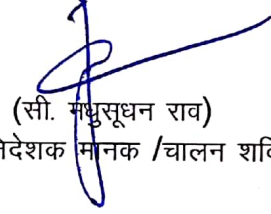 (सी. मधुसूधन राव)
निदेशक मानक /चालन शक्ति